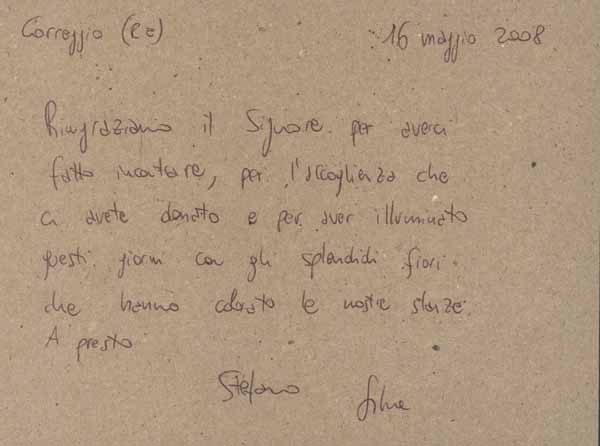 Correggio (RE) 16 maggio 2008
Ringraziamo il Signore per averci
fatto incontrare, per l'accoglienza che
ci avete donato e per aver illuminato
questi giorni con gli splendidi fiori
che hanno colorato le nostre stanze.
A presto
Stefano Silvia